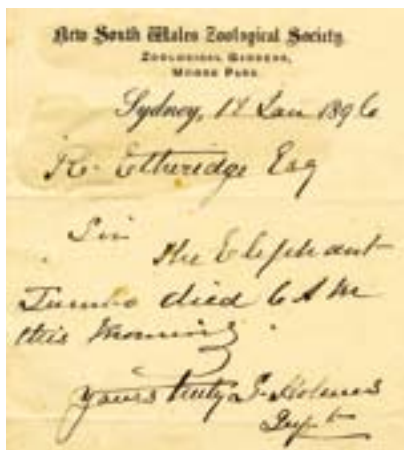 New South Wales Zoological Society.
Zoological Gardens,
Moore Park.
Sydney, 17 Jan 1896
R. Etheridge Esq
Sir
The Elephant
Jumbo died 6 AM
this Morning.
Yours truly J. Holmes
Supt